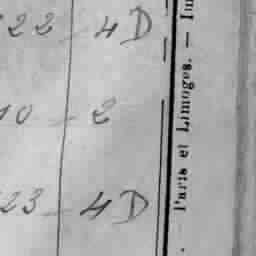 22 - 4 D
10 - 2
23 - 4 D
Paris et Limoges. -